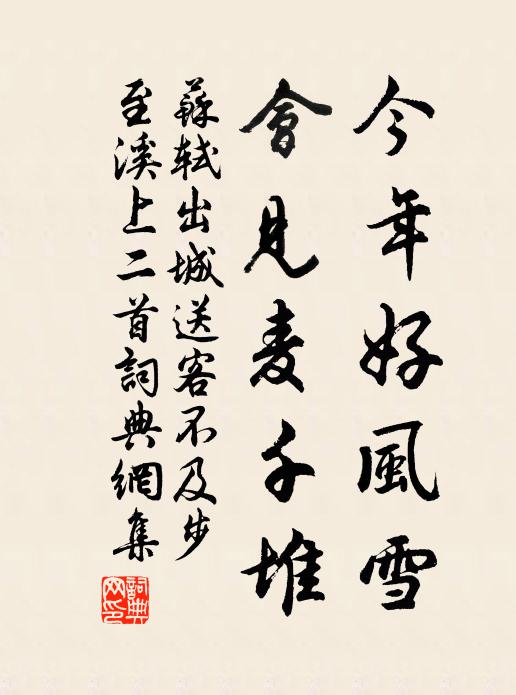 今年好風雪
會見麦千堆
蘇軾出城送客不及步
至溪上二首詞典網集
詞典网印